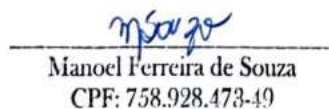 MSouza
Manoel Ferreira de Souza
CPF: 758.928.473-49